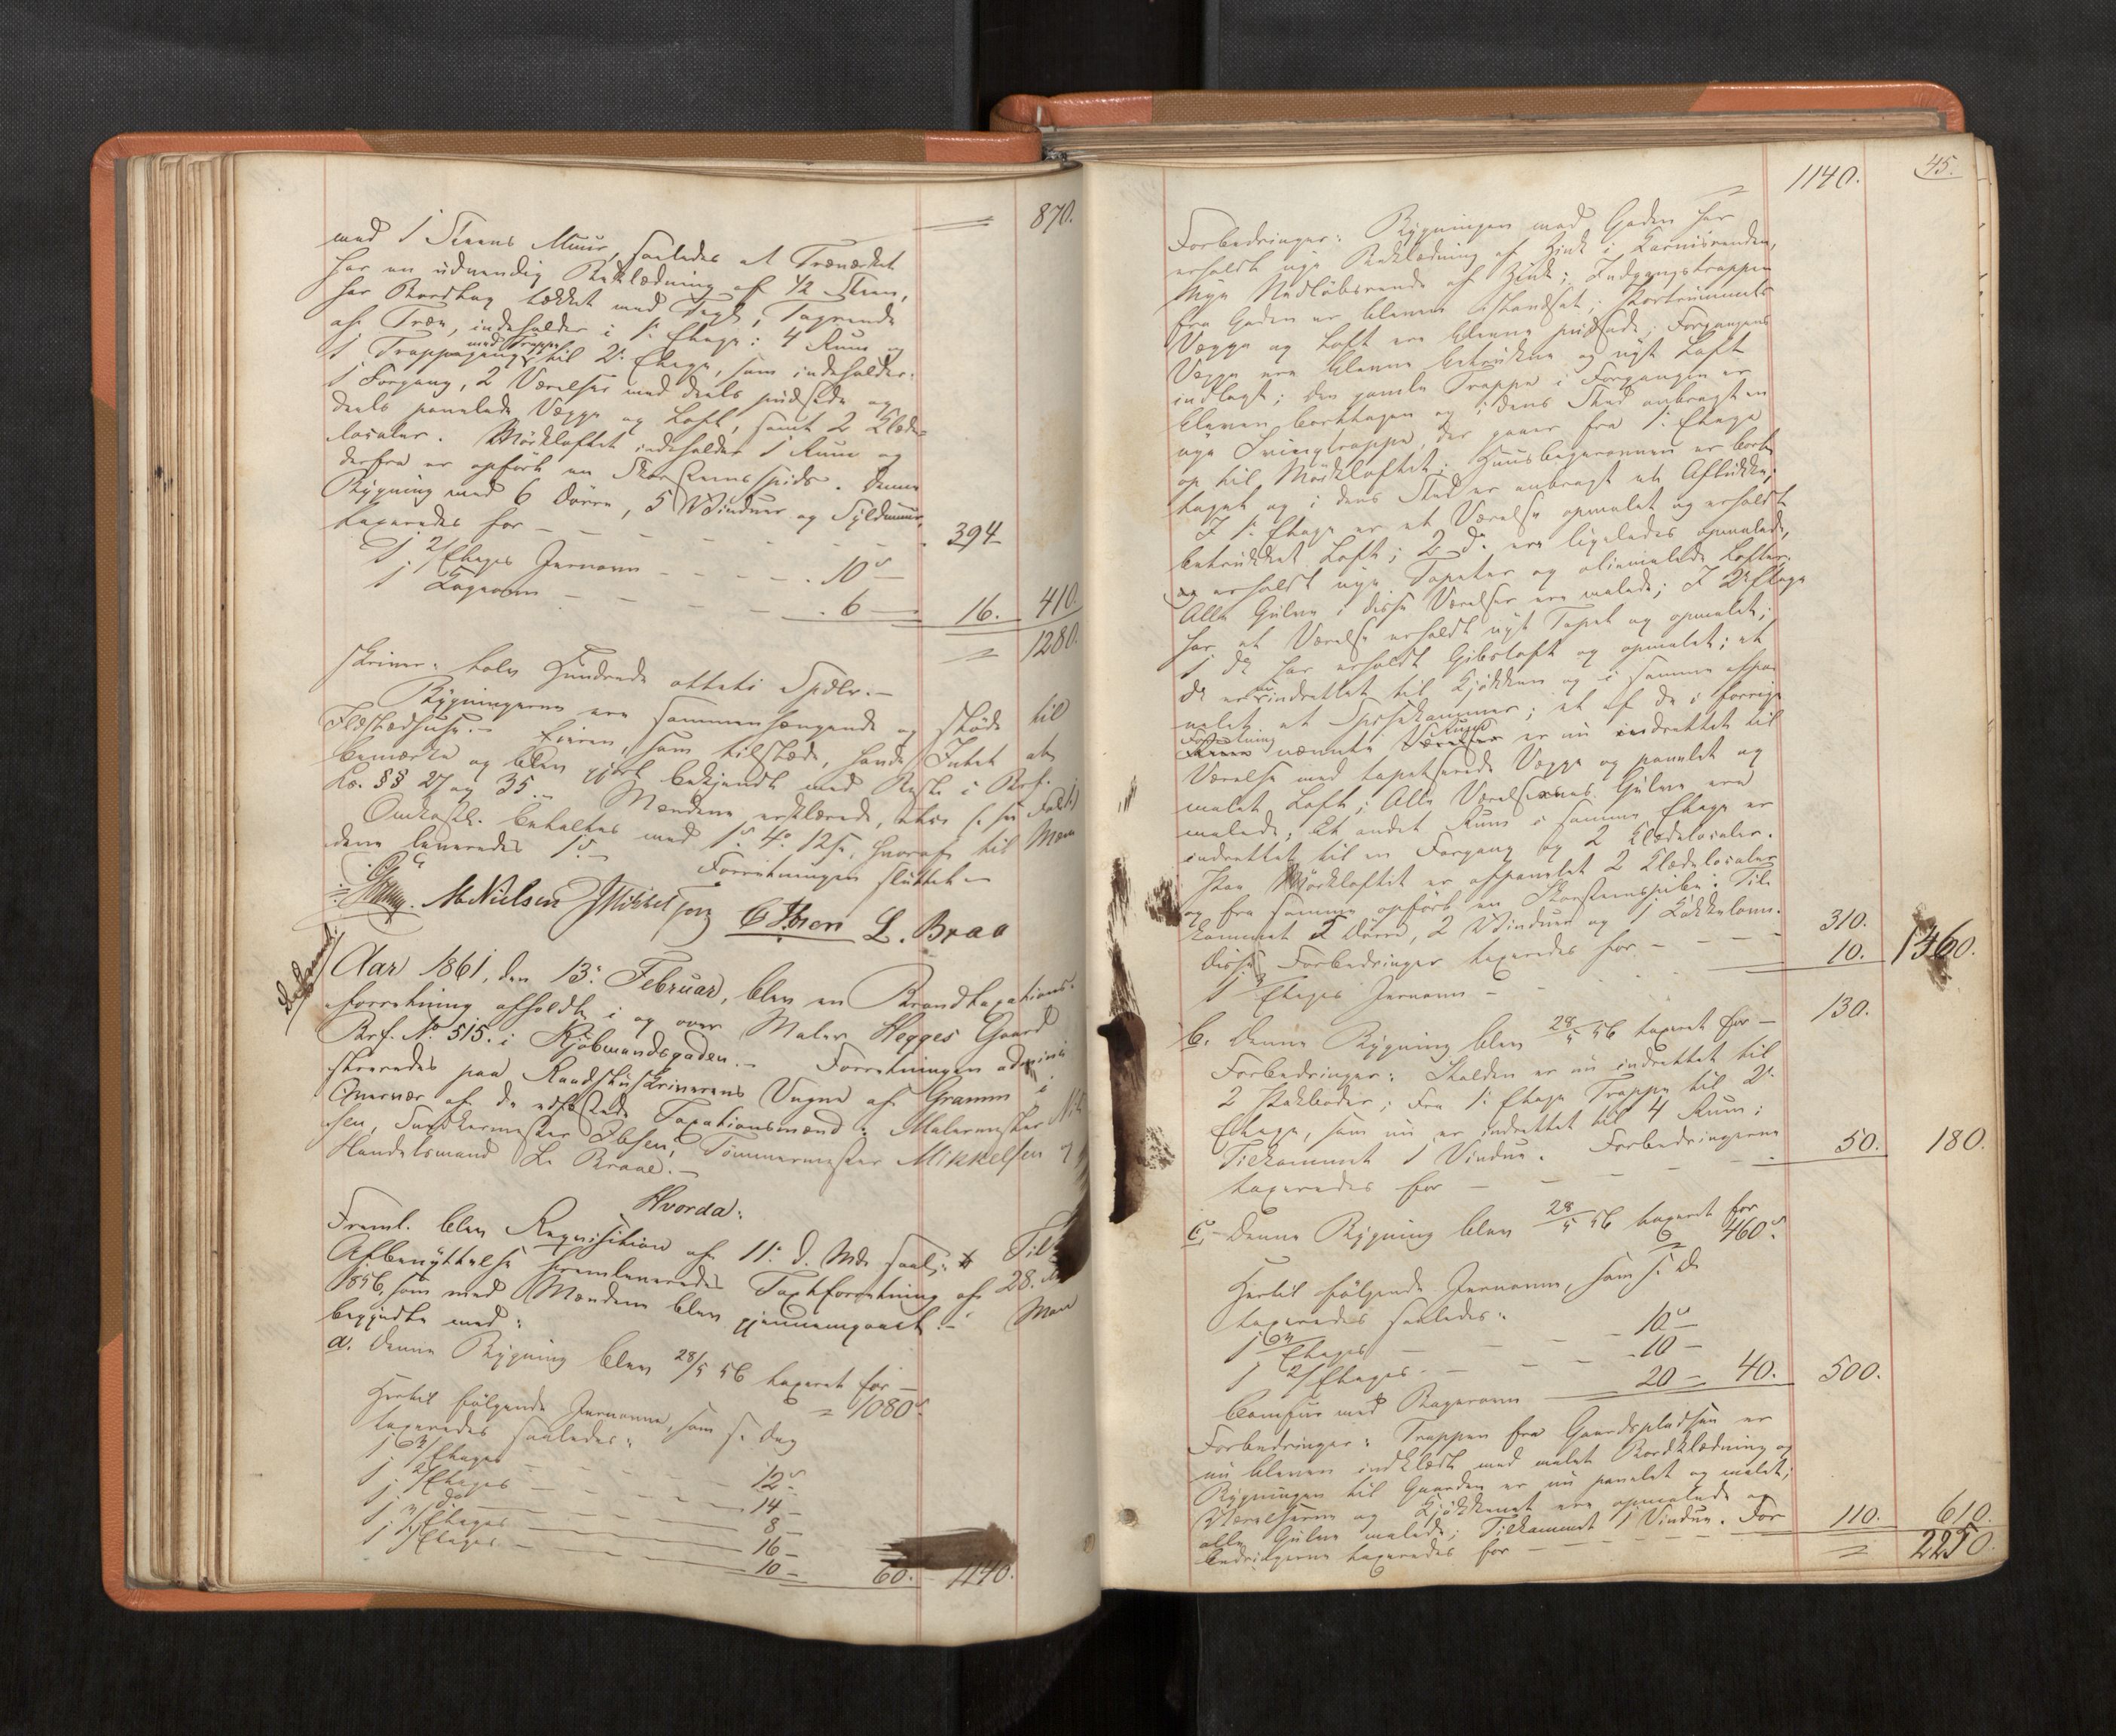 870.
med 1 Steens Muur, saaledes at Træværket
har en udvendig Beklædning af 1/2 Steen,
har Bordtag tækket med Tegl, Tagrende
af Træ, indeholder i 1: Etage: 4 Rum og
1 Trappegang med Trappe til 2: Etage, som indeholder:
1 Forgang, 2 Værelser med deels pudsede og
deels panelede Vægge og Loft, samt 2 Klæde-
localer. Mørkloftet indeholder 1 Rum og
derfra er opført en Skorsteenspibe. Denne
Bygning med 6 Dørre, 5 Vinduer og Fyldmuur
taxeredes for - - - - - 394
1 2/Etages Jernovn - - - - 10 -
1 Kogeovn - - - - - 6 - 16. 410.
1280.
skriver: tolv Hundrede otteti Spdlr.
Bygningerne ere sammenhængende og støde til
Ildstedhuse. - Eieren, som tilstede, havde Intet at
bemærke og blev gjort bekjendt med
Lov §§ 27 og 35. - Mændene erklærede, at
Omkostn. betaltes med 1. 4. 12 s, hvoraf til Mæn-
dene leveredes 1. -
Forretningen sluttet -
M. Nielsen J Mikkelsen C Ibsen L. Braa
Aar 1861, den 13: Februar, blev en Brandtaxations-
forretning afholdt i og over Maler Hegges Gaard
Brf. No 515. i Kjøbmandsgaden. - Forretningen admini-
streredes paa Raadstuskriverens Vegne af Gramm i
Overvær af de edfæstede Taxationsmænd: Malermester Niel-
sen, Snedkermester Ibsen, Tømmermester Mikkelsen og
Handelsmand L. Braae. -
Hvorda:
Freml. blev Requisition af 11: d. Md. saal: Til
Afbenyttelse fremlevered es Taxtforretning af 28. Mai
1856, som med Mændene blev gjennemgaaet. - Man
begyndte med:
a. Denne Bygning blev 28/5 56 taxeret for -
1080.
Hertil følgende Jernovne, som s. Dag
taxeredes saaledes:
1 3/Etages - - - - 12 -
1 2/Etages - - - - 14 -
1 do - - - - 8 -
1 3/Etages - - - - 16 -
1 3/Etages - - - - 10 - 60. 1140.
1140. 45.
Forbedringer: Bygningen mod Gaden har
erholdt nye Beklædning af Zink i Karnisrenden,
Nye Nedløbsrende af Zink; Indgangstrappen
fra Gaden er bleven istandsat; Portrummets
Vægge og Loft ere blevne pudsede; Forgangens
Vægge ere blevne betrukne og nyt Loft
indlagt; den gamle Trappe i Forgangen er
bleven borttagen og i dens Sted anbragt en
nye Svingtrappe, der gaaer fra 1: Etage
op til Mørkloftet; Huusbagerovnen er bort-
taget og i dens Sted er anbragt et Aflukke;
I 1: Etage er et Værelse opmalet og erholdt
betrukket Loft; 2 do. ere ligeledes opmalede,
og erholdt nye Tapeter og oliemalede Lofter.
Alle Gulve i disse Værelser ere malede; I 2: Etage
har et Værelse erholdt nyt Tapet og opmalet;
1 do har erholdt Gibsloft og opmalet; et
do er nu indrettet til Kjøkken og i samme afpa-
nelet et Spisekammer; et af de i forrige
Forretning nævnte Rum er nu indrettet til
Værelse med tapetserede Vægge og panelet og
malet Loft; Alle Værelsernes Gulve ere
malede; Et andet Rum i samme Etage er
indrettet til en Forgang og 2 Klædelocaler.
Paa Mørkloftet er afpanelet 2 Klædelocaler
og fra samme opført en Skorsteenspibe. Til-
kommet 2 Dørre, 2 Vinduer og 1 Kakkelovn.
Disse Forbedringer taxeredes for - - - - 310.
1 3/Etages Jernovn - 10. 1460.
b. Denne Bygning blev 28/5 56 taxeret for - 130.
Forbedringer: Stalden er nu indrettet til
2 Pakboder; Fra 1: Etage Trappe til 2:
Etage, som nu er indrettet til 4 Rum;
Tilkommet 1 Vindue. Forbedringerne
taxeredes for - - - - 50. 180.
c. Denne Bygning blev 28/5 56 taxeret for
460.
Hertil følgende Jernovne, som s. D.
taxeredes saaledes:
1 3/Etages - - - 10 -
1 2/Etages - - - 10 -
Comfur med Bagerovn 20 - 40. 500.
Forbedringer: Trappen fra Gaardspladsen er
nu bleven indklædt med malet Bordklædning og
Bygningen til Gaarden er nu panelet og malet;
Værelserne og Kjøkkenet ere opmalede og
alle Gulve malede; Tilkommet 1 Vindue. For-
bedringerne taxeredes for - - - - 110. 610.
2250.